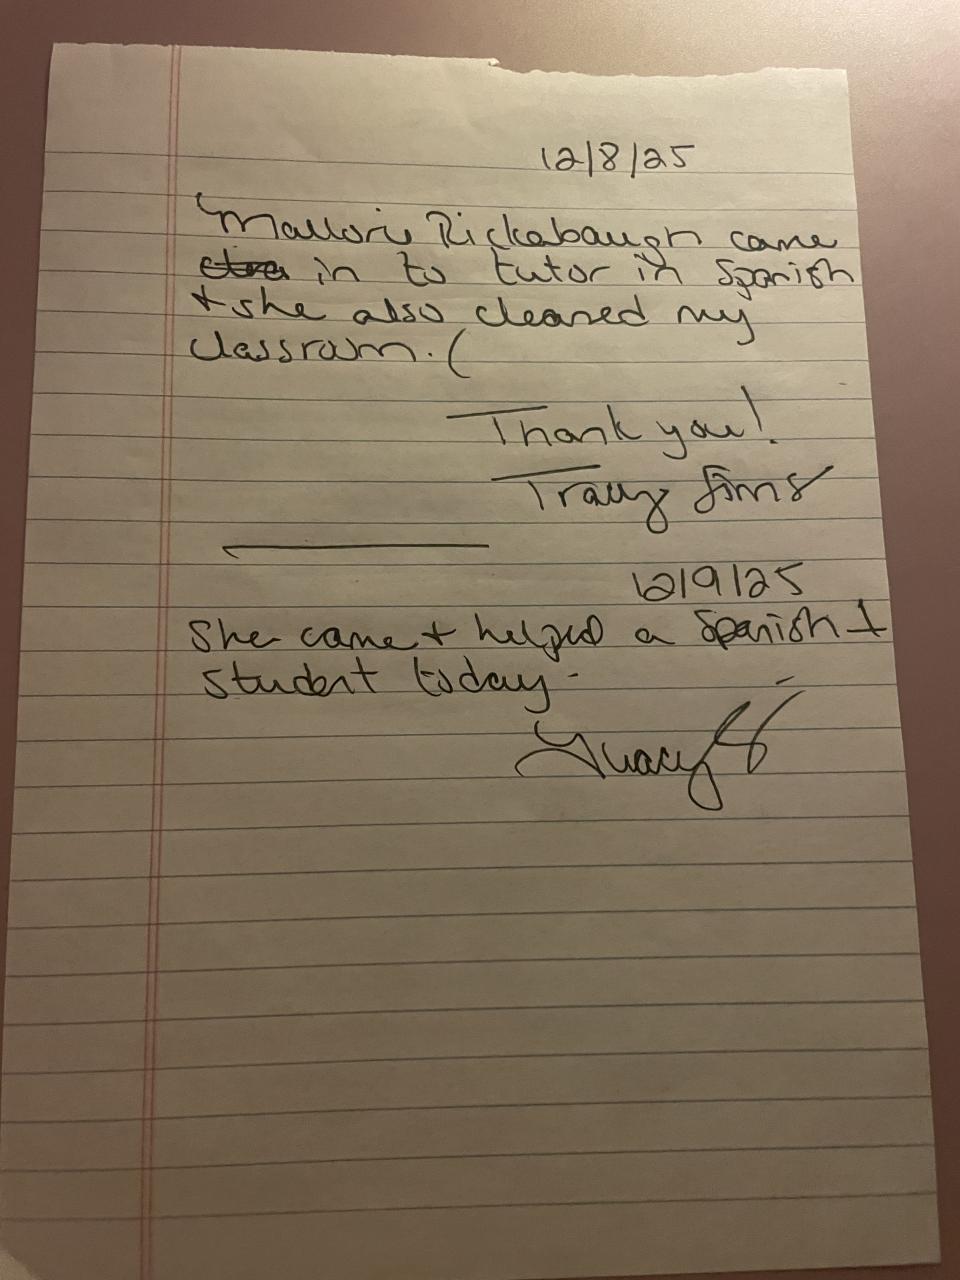 12/8/25
Mallorie Rickabaugh came
in to tutor in Spanish
+ she also cleaned my
classroom. (
Thank you!
Tracy Sims
12/9/25
She came + helped a Spanish 1
student today.
Tracy S